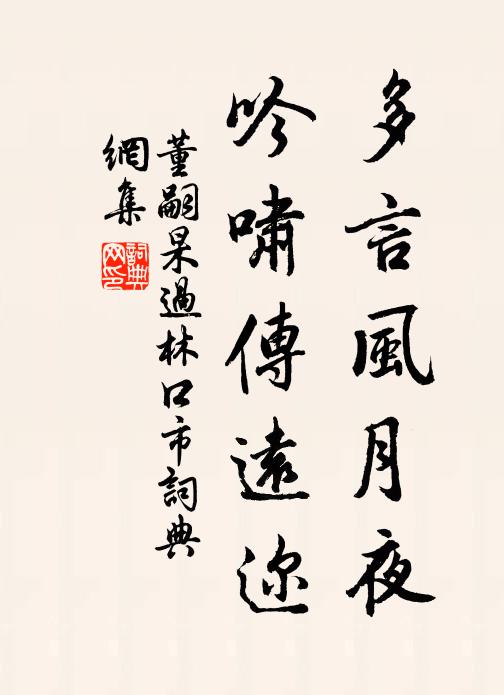 多言風月夜
吟嘯傳遠邇
董嗣杲過林口市詞典
網集
詞典
网印